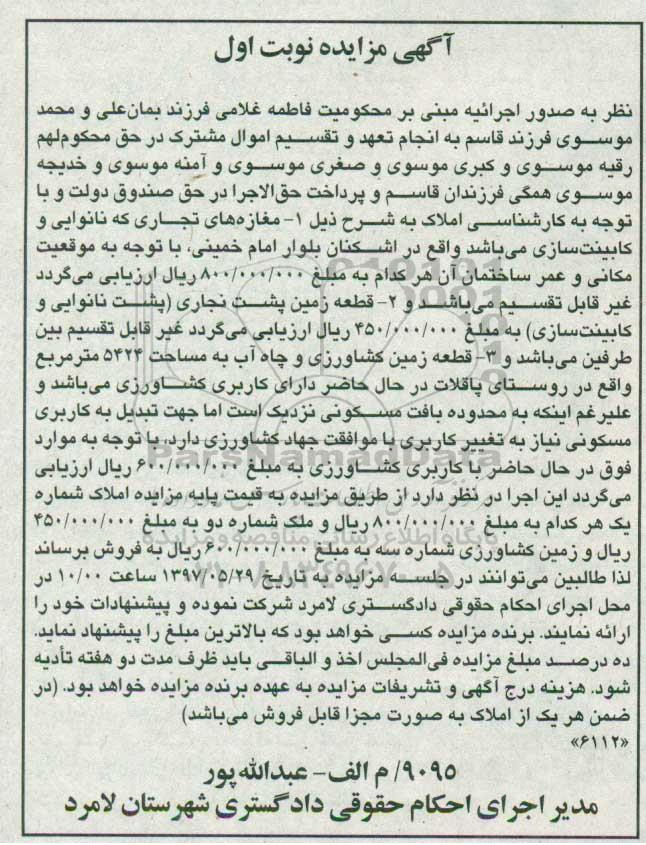 آگهی مزایده نوبت اول
نظر به صدور اجرائیه مبنی بر محکومیت فاطمه غلامی فرزند بمان‌علی و محمد
موسوی فرزند قاسم به انجام تعهد و تقسیم اموال مشترک در حق محکوم‌لهم
رقیه موسوی و کبری موسوی و صغری موسوی و آمنه موسوی و خدیجه
موسوی همگی فرزندان قاسم و پرداخت حق‌الاجرا در حق صندوق دولت و با
توجه به کارشناسی املاک به شرح ذیل ۱- مغازه‌های تجاری که نانوایی و
کابینت‌سازی می‌باشد واقع در اشکنان بلوار امام خمینی، با توجه به موقعیت
مکانی و عمر ساختمان آن هر کدام به مبلغ ۸۰۰/۰۰۰/۰۰۰ ریال ارزیابی می‌گردد
غیر قابل تقسیم می‌باشند و ۲- قطعه زمین پشت نجاری (پشت نانوایی و
کابینت‌سازی) به مبلغ ۴۵۰/۰۰۰/۰۰۰ ریال ارزیابی می‌گردد غیر قابل تقسیم بین
طرفین می‌باشد و ۳- قطعه زمین کشاورزی و چاه آب به مساحت ۵۴۲۴ مترمربع
واقع در روستای پاقلات در حال حاضر دارای کاربری کشاورزی می‌باشد و
علیرغم اینکه به محدوده بافت مسکونی نزدیک است اما جهت تبدیل به کاربری
مسکونی نیاز به تغییر کاربری با موافقت جهاد کشاورزی دارد، با توجه به موارد
فوق در حال حاضر با کاربری کشاورزی به مبلغ ۶۰۰/۰۰۰/۰۰۰ ریال ارزیابی
می‌گردد این اجرا در نظر دارد از طریق مزایده به قیمت پایه مزایده املاک شماره
یک هر کدام به مبلغ ۸۰۰/۰۰۰/۰۰۰ ریال و ملک شماره دو به مبلغ ۴۵۰/۰۰۰/۰۰۰
ریال و زمین کشاورزی شماره سه به مبلغ ۶۰۰/۰۰۰/۰۰۰ ریال به فروش برساند
لذا طالبین می‌توانند در جلسه مزایده به تاریخ ۱۳۹۷/۰۵/۲۹ ساعت ۱۰/۰۰ در
محل اجرای احکام حقوقی دادگستری لامرد شرکت نموده و پیشنهادات خود را
ارائه نمایند. برنده مزایده کسی خواهد بود که بالاترین مبلغ را پیشنهاد نماید.
ده درصد مبلغ مزایده فی‌المجلس اخذ و الباقی باید ظرف مدت دو هفته تأدیه
شود. هزینه درج آگهی و تشریفات مزایده به عهده برنده مزایده خواهد بود. (در
ضمن هر یک از املاک به صورت مجزا قابل فروش می‌باشد)
«۶۱۱۲»
۹۰۹۵/ م الف- عبدالله‌پور
مدیر اجرای احکام حقوقی دادگستری شهرستان لامرد
ParsNamadData
پایگاه اطلاع رسانی مناقصه و مزایده